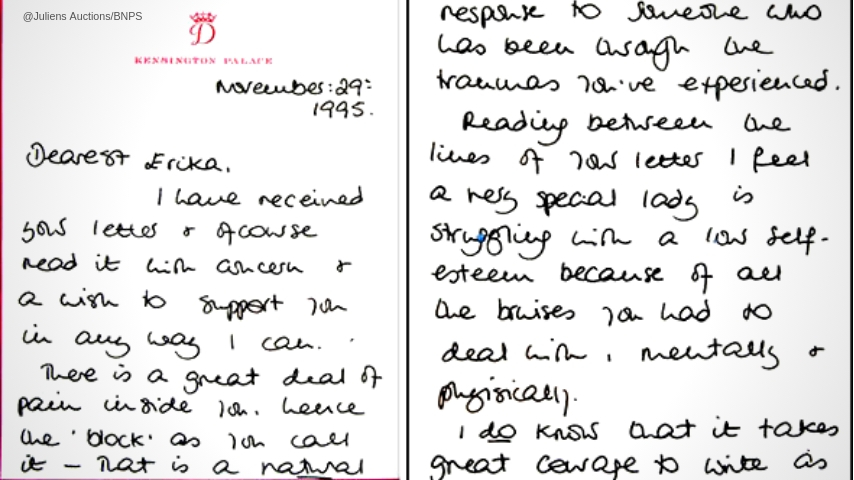 @Juliens Auctions/BNPS
D
KENSINGTON PALACE
November: 29th
1995.
Dearest Erika,
I have received
your letter & ofcourse
read it with concern &
a wish to support you
in any way I can.
There is a great deal of
pain inside you. hence
the 'block' as you call
it – That is a natural
response to someone who
has been through the
traumas you've experienced.
Reading between the
lines of your letter I feel
a very special lady is
struggling with a low self-
esteem because of all
the bruises you had to
deal with, mentally &
physically.
I do know that it takes
great courage to write as